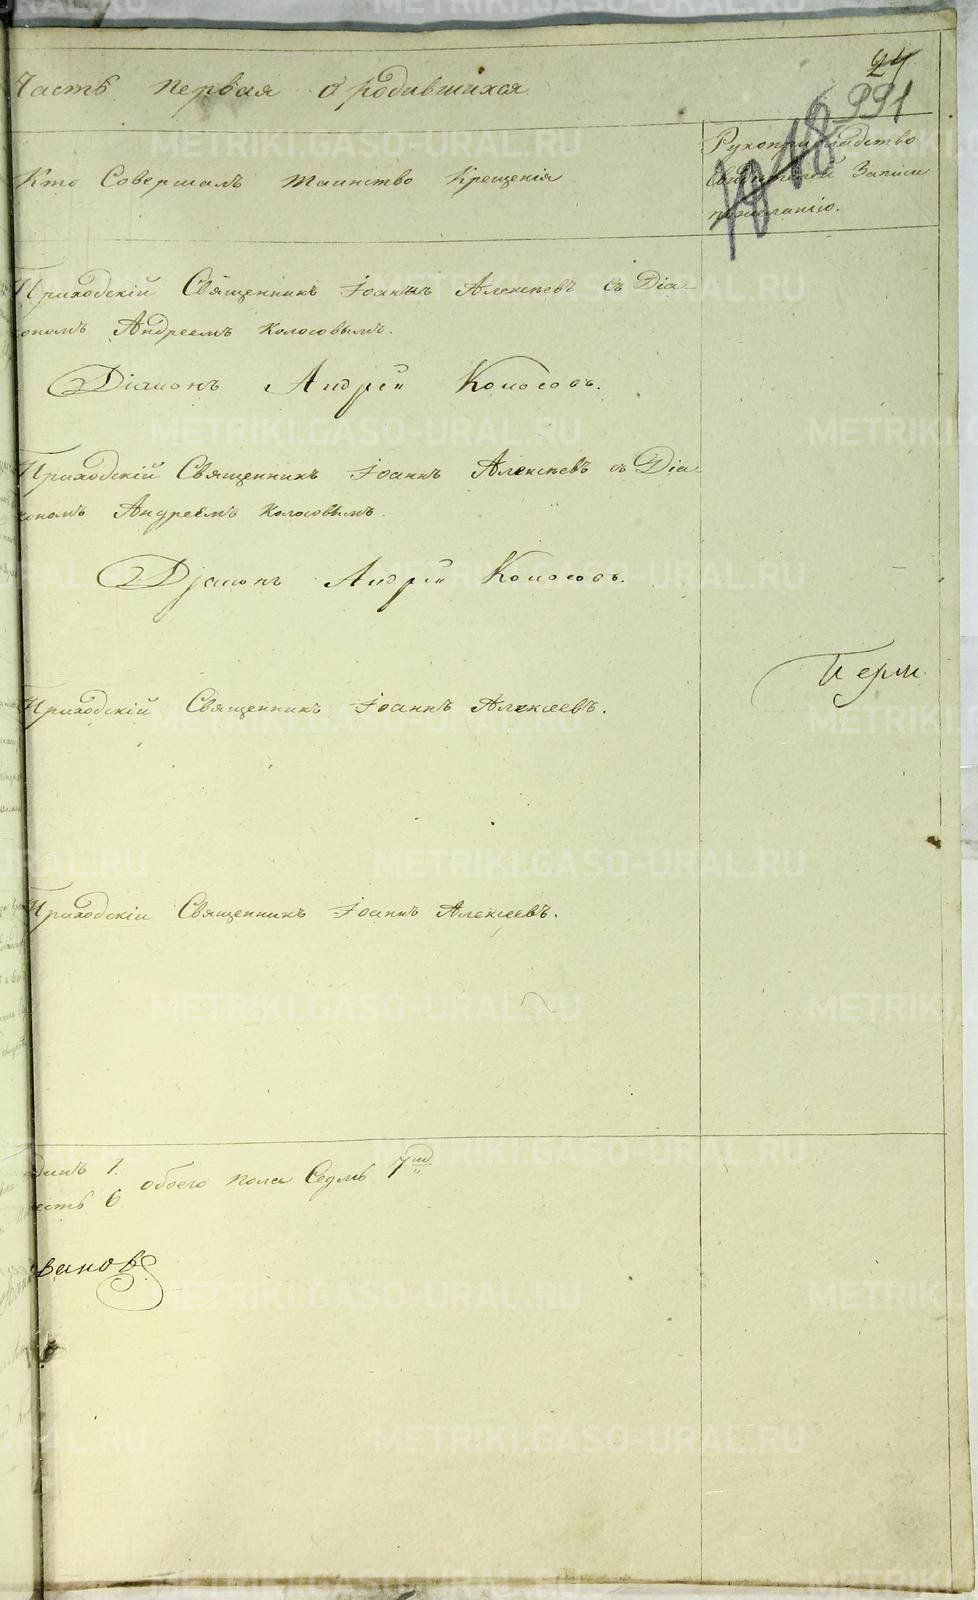 24
991
Часть первая о родившихся
Кто Совершалъ таинство крещенія
Рукоприкладство
Свидѣтелей Записи
по желанію.
Приходскій Священникъ Іоаннъ Алексѣевъ съ Діа
кономъ Андреемъ Колосовымъ.
Діаконъ Андрей Колосовъ.
Приходскій Священникъ Іоаннъ Алексѣевъ съ Діа
кономъ Андреемъ Колосовымъ.
Діаконъ Андрей Колосовъ.
Перм
Приходскій Священникъ Іоаннъ Алексѣевъ.
Приходскій Священникъ Іоаннъ Алексѣевъ.
динъ 1.
есть 6 обоего пола Седмь 7
вановъ
METRIKI.GASO-URAL.RU